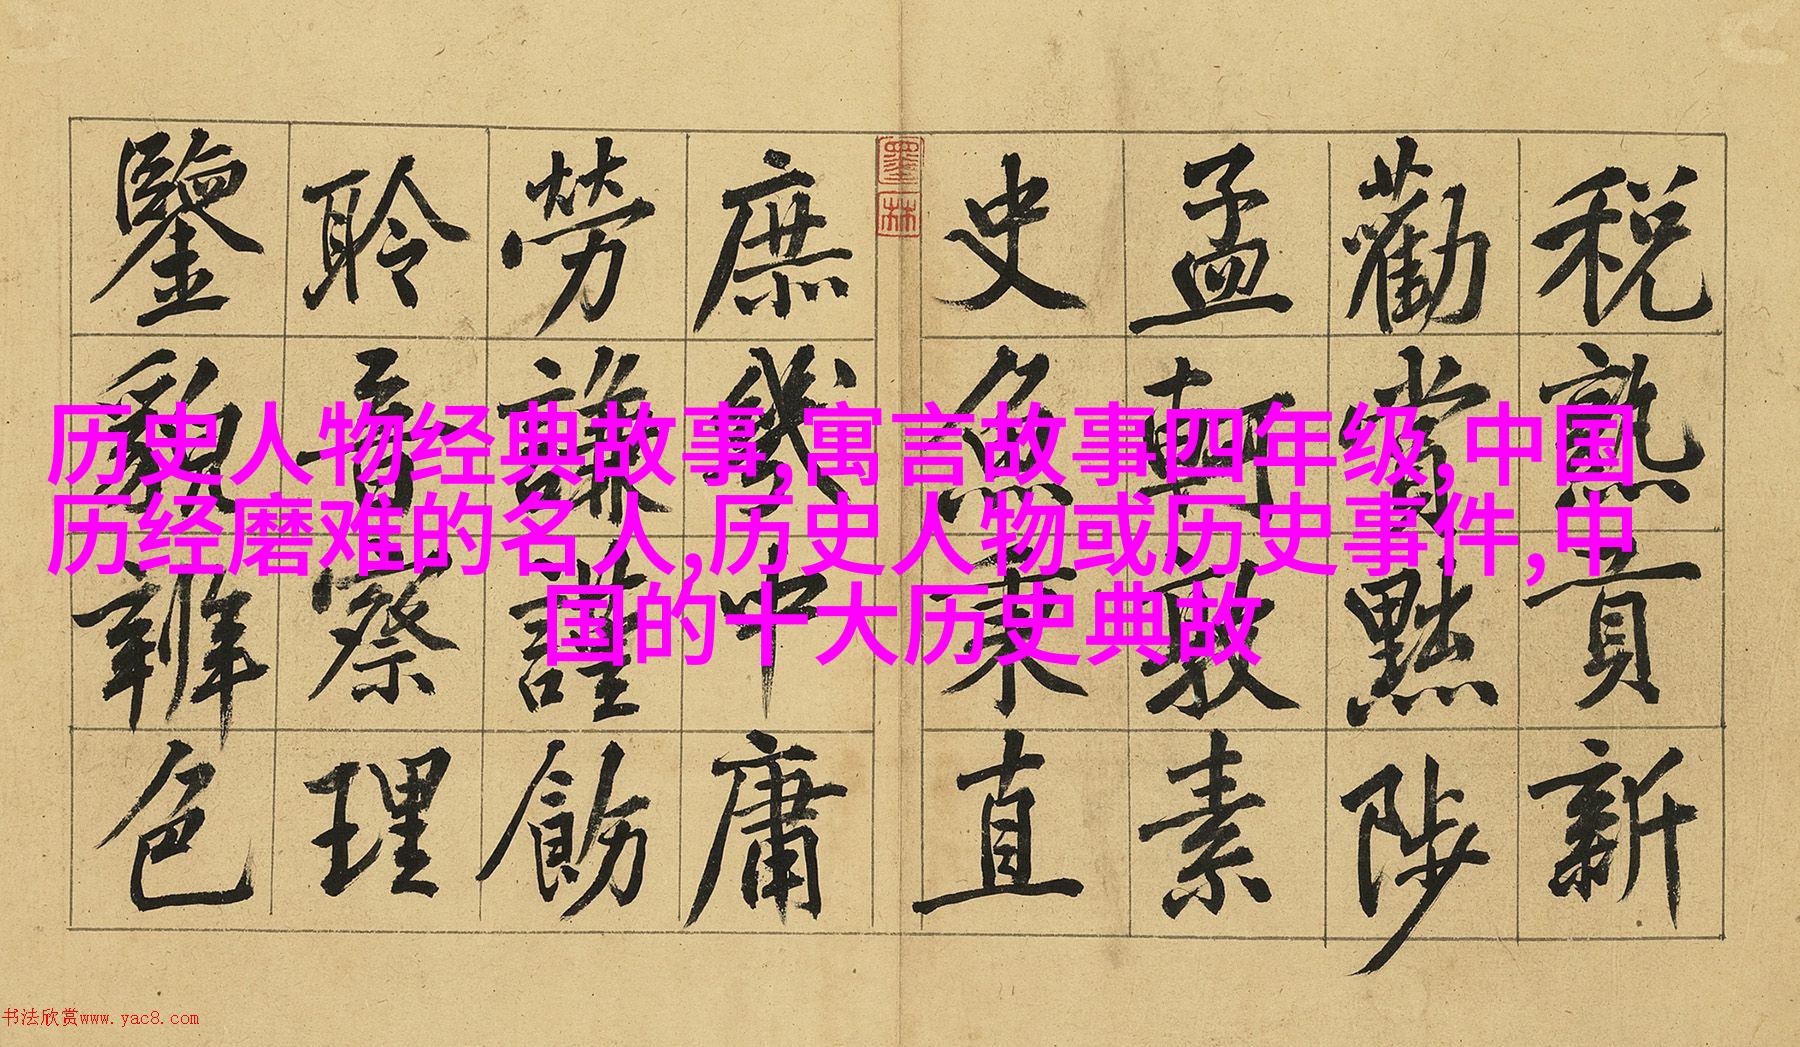 稅熟貢新
勸賞黜陟
孟軻敦素
史魚秉直
墨林
庶幾中庸
勞謙謹飭
聆音察理
鑒貌辨色
历史人物经典故事,寓言故事四年级,中国
历经磨难的名人,历史人物或历史事件,中
国的十大历史典故
书法欣赏www.yac8.com